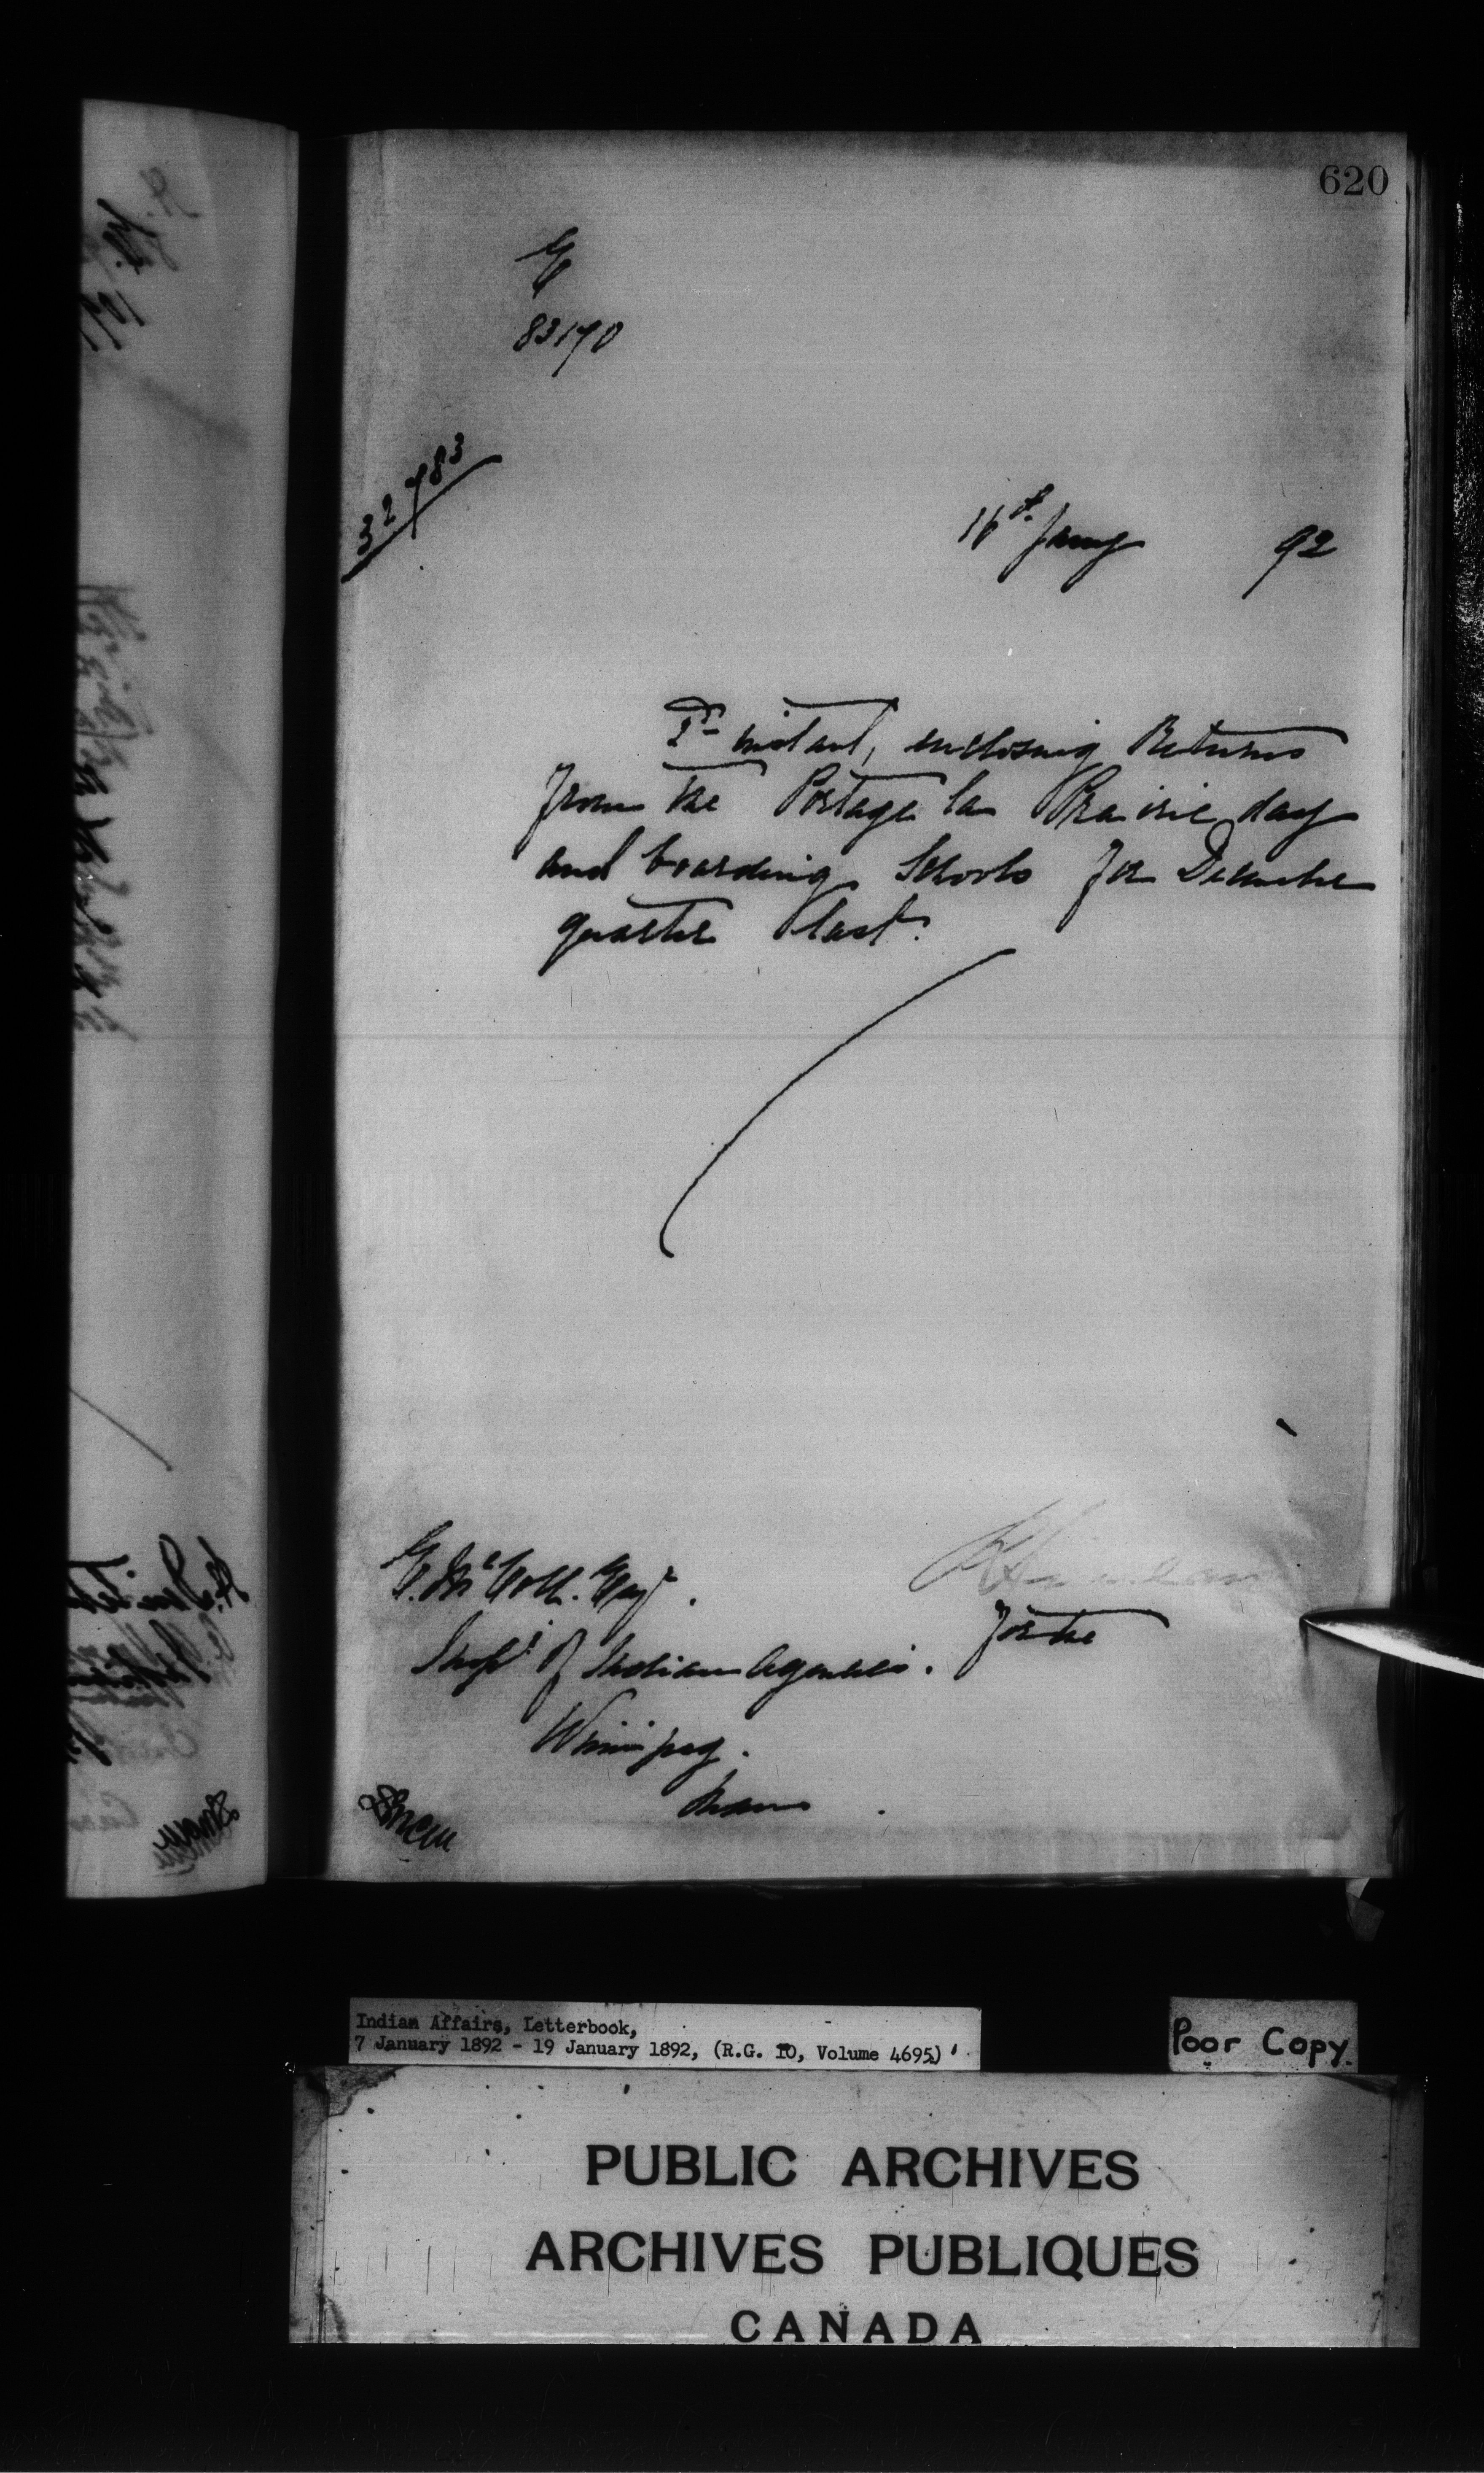 620
83170
32783
16th Jany 92
2nd instant, enclosing Returns
from the Portage la Prairie day
and boarding Schools for December
quarter last.
E. McColl. Esqr.
Supt of Indian Agencies.
for the
Winnipeg.
Man
Indian Affairs, Letterbook,
7 January 1892 - 19 January 1892, (R.G. 10, Volume 4695)
Poor Copy.
PUBLIC ARCHIVES
ARCHIVES PUBLIQUES
CANADA